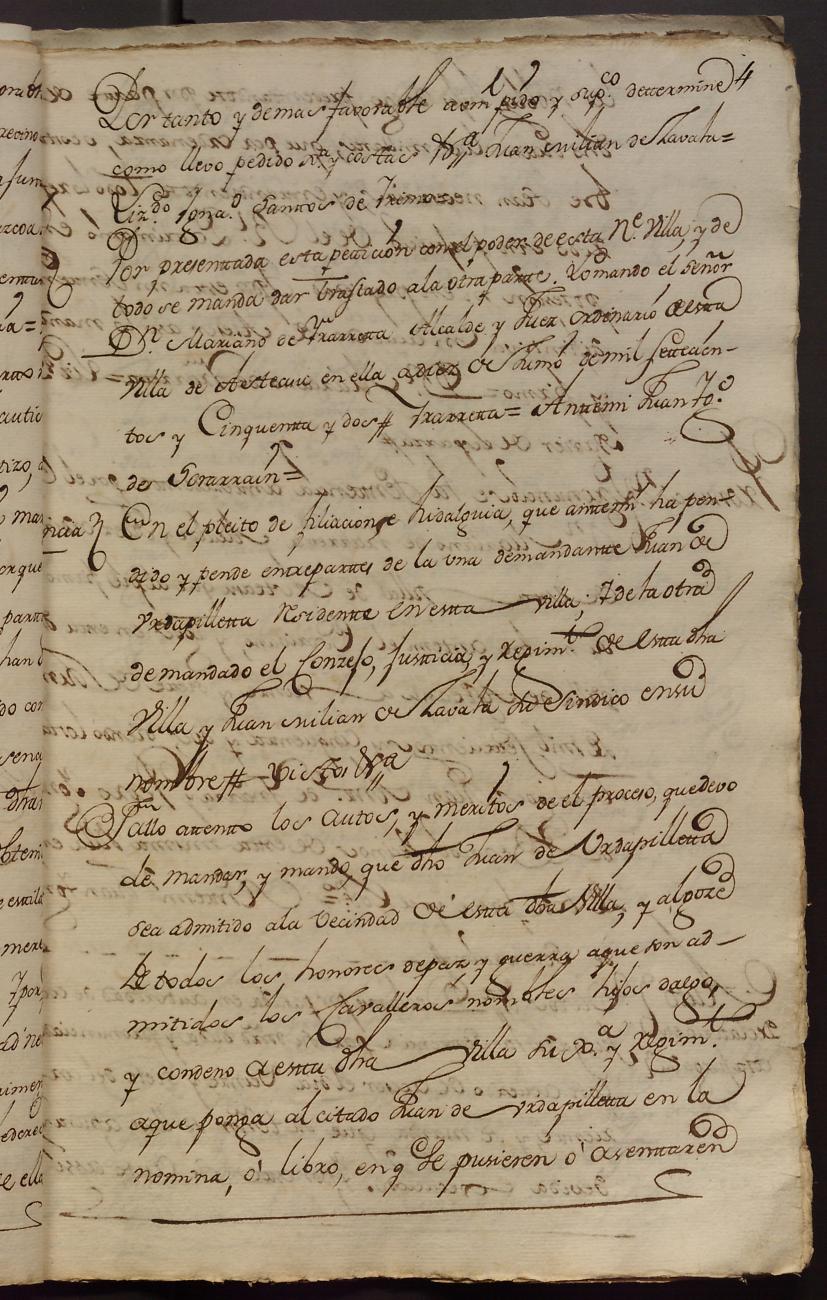 4
Por tanto y demas favorable a vm pido y sup.co determine
como llevo pedido Jª y costas &ª Juan milian de Zavala=
Liz.do Igna.o Santtos de
Por presenttada estta peticion con el poder de estta N.e Villa, y de
todo se manda dar traslado ala otra partte. Lo mando el señor
Dn. Mariano de Yrarreta Alcalde y Juez ordinario de estta
villa de Aizteaui en ella a diez de Junio de mil settecien-
tos y Cinquentta y dos# Yrarreta= Antte mi Juan Jo.
de Sorarrain=
En el pleito de filiacion, e hidalguia, que antte mi ha pen-
dido y pende entre parttes de la vna demandantte Juan de
Vrdapilletta Residentte en estta villa; Y de la otra
demandado el Conzejo, Justicia, y Regim.to de estta dha
Villa y Juan milian de Zavala su Sindico en su
nombre# Vistos &ª
Fallo attentto los auttos, y meritos de el proceso, que devo
de mandar, y mando que dho Juan de Vrdapilletta
sea admitido ala Vecindad de estta dha Villa, y al goze
de todos los honores de paz, y guerra aque son ad-
mitidos los Cavalleros nobles hijos dalgo,
y condeno a estta dha villa su Jª y Regim.to
aque ponga al citado Juan de Vrdapilletta en la
nomina, ó libro, en q.e se pusieren ó asenttaren